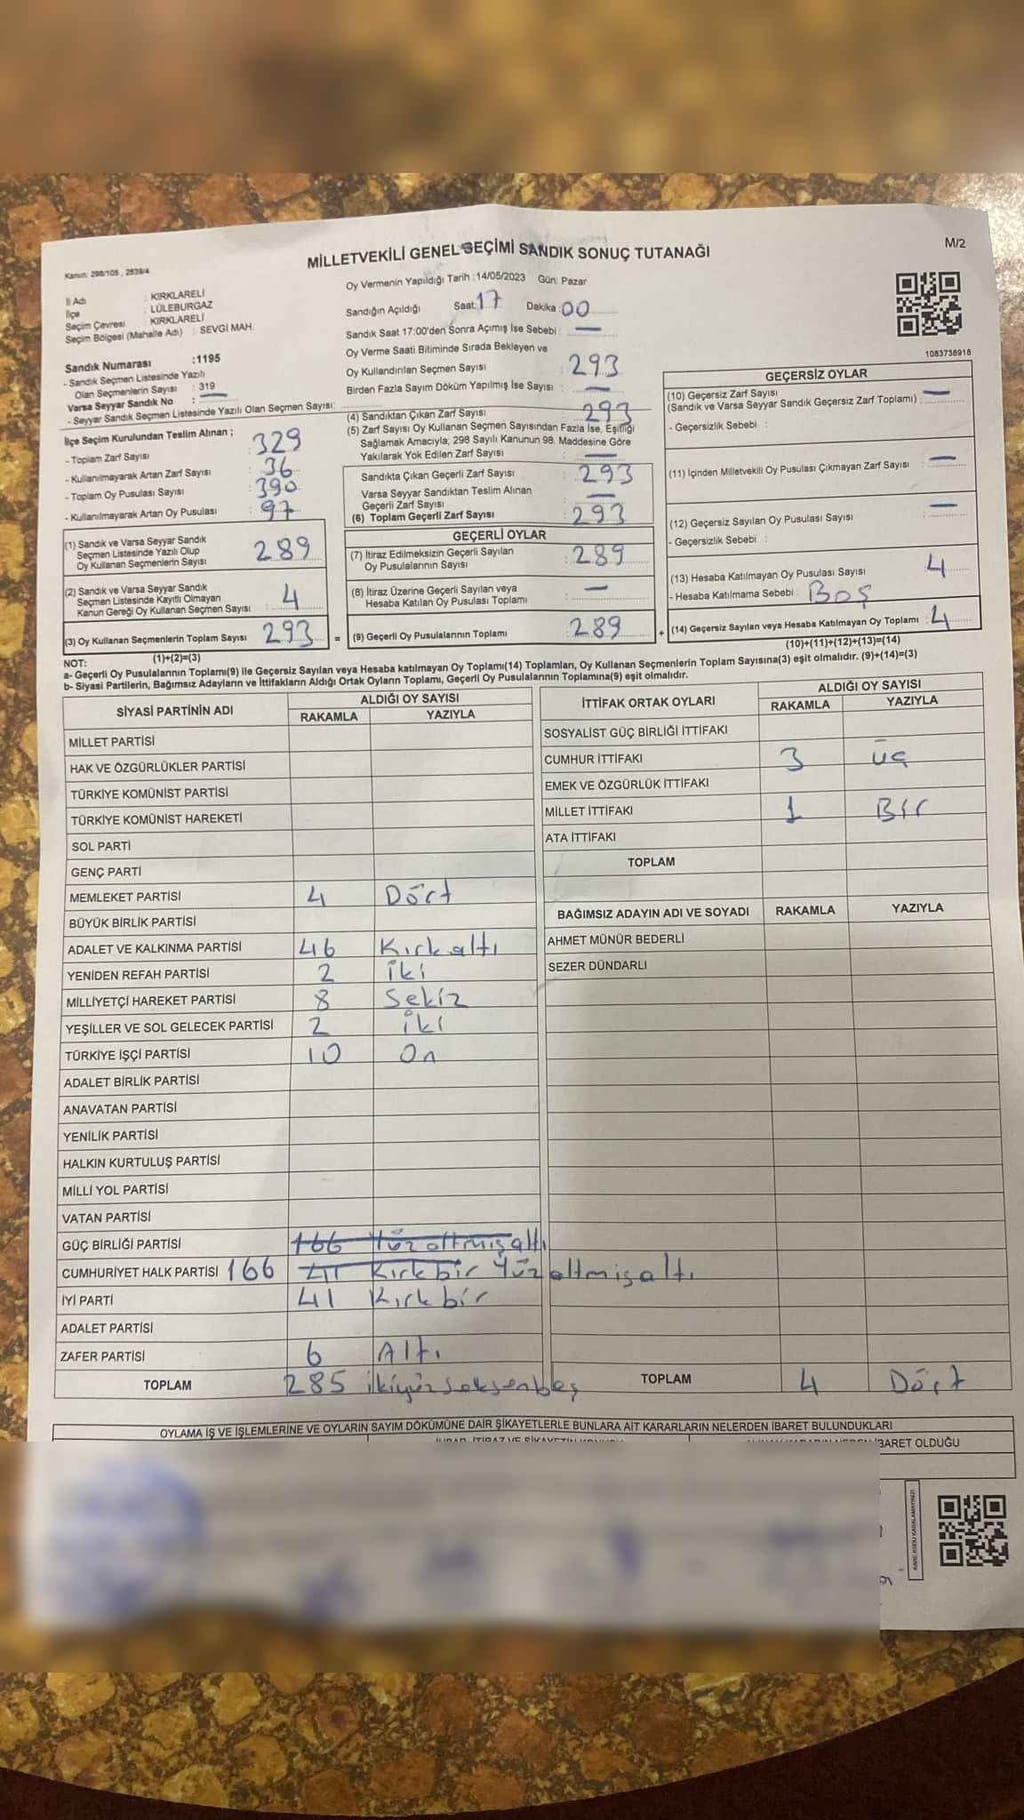 MİLLETVEKİLİ GENEL SEÇİMİ SANDIK SONUÇ TUTANAĞI
M/2
Kanun: 298/105 , 2839/4
İl Adı : KIRKLARELİ
İlçe : LÜLEBURGAZ
Seçim Çevresi : KIRKLARELİ
Seçim Bölgesi (Mahalle Adı) : SEVGİ MAH.
Sandık Numarası :1195
- Sandık Seçmen Listesinde Yazılı
Olan Seçmenlerin Sayısı : 319
Varsa Seyyar Sandık No : —
- Seyyar Sandık Seçmen Listesinde Yazılı Olan Seçmen Sayısı:
İlçe Seçim Kurulundan Teslim Alınan ;
- Toplam Zarf Sayısı : 329
- Kullanılmayarak Artan Zarf Sayısı : 36
- Toplam Oy Pusulası Sayısı : 390
- Kullanılmayarak Artan Oy Pusulası : 97
(1) Sandık ve Varsa Seyyar Sandık
Seçmen Listesinde Yazılı Olup
Oy Kullanan Seçmenlerin Sayısı : 289
(2) Sandık ve Varsa Seyyar Sandık
Seçmen Listesinde Kayıtlı Olmayan
Kanun Gereği Oy Kullanan Seçmen Sayısı : 4
(3) Oy Kullanan Seçmenlerin Toplam Sayısı : 293 =
(1)+(2)=(3)
Oy Vermenin Yapıldığı Tarih : 14/05/2023 Gün: Pazar
Sandığın Açıldığı Saat: 17 Dakika : 00
Sandık Saat 17:00'den Sonra Açımış İse Sebebi : —
Oy Verme Saati Bitiminde Sırada Bekleyen ve
Oy Kullandırılan Seçmen Sayısı : 293
Birden Fazla Sayım Döküm Yapılmış İse Sayısı : —
(4) Sandıktan Çıkan Zarf Sayısı : 293
(5) Zarf Sayısı Oy Kullanan Seçmen Sayısından Fazla İse, Eşitliği
Sağlamak Amacıyla; 298 Sayılı Kanunun 98. Maddesine Göre
Yakılarak Yok Edilen Zarf Sayısı : —
Sandıkta Çıkan Geçerli Zarf Sayısı : 293
Varsa Seyyar Sandıktan Teslim Alınan
Geçerli Zarf Sayısı : —
(6) Toplam Geçerli Zarf Sayısı : 293
GEÇERLİ OYLAR
(7) İtiraz Edilmeksizin Geçerli Sayılan
Oy Pusulalarının Sayısı : 289
(8) İtiraz Üzerine Geçerli Sayılan veya
Hesaba Katılan Oy Pusulası Toplamı : —
(9) Geçerli Oy Pusulalarının Toplamı : 289 +
1083738918
GEÇERSİZ OYLAR
(10) Geçersiz Zarf Sayısı
(Sandık ve Varsa Seyyar Sandık Geçersiz Zarf Toplamı) : —
- Geçersizlik Sebebi :
(11) İçinden Milletvekili Oy Pusulası Çıkmayan Zarf Sayısı : —
(12) Geçersiz Sayılan Oy Pusulası Sayısı : —
- Geçersizlik Sebebi :
(13) Hesaba Katılmayan Oy Pusulası Sayısı : 4
- Hesaba Katılmama Sebebi : Boş
(14) Geçersiz Sayılan veya Hesaba Katılmayan Oy Toplamı : 4
(10)+(11)+(12)+(13)=(14)
NOT:
a- Geçerli Oy Pusulalarının Toplamı(9) ile Geçersiz Sayılan veya Hesaba katılmayan Oy Toplamı(14) Toplamları, Oy Kullanan Seçmenlerin Toplam Sayısına(3) eşit olmalıdır. (9)+(14)=(3)
b- Siyasi Partilerin, Bağımsız Adayların ve İttifakların Aldığı Ortak Oyların Toplamı, Geçerli Oy Pusulalarının Toplamına(9) eşit olmalıdır.
SİYASİ PARTİNİN ADI ALDIĞI OY SAYISI
RAKAMLA YAZIYLA
MİLLET PARTİSİ
HAK VE ÖZGÜRLÜKLER PARTİSİ
TÜRKİYE KOMÜNİST PARTİSİ
TÜRKİYE KOMÜNİST HAREKETİ
SOL PARTİ
GENÇ PARTİ
MEMLEKET PARTİSİ 4 Dört
BÜYÜK BİRLİK PARTİSİ
ADALET VE KALKINMA PARTİSİ 46 Kırkaltı
YENİDEN REFAH PARTİSİ 2 İki
MİLLİYETÇİ HAREKET PARTİSİ 8 Sekiz
YEŞİLLER VE SOL GELECEK PARTİSİ 2 İki
TÜRKİYE İŞÇİ PARTİSİ 10 On
ADALET BİRLİK PARTİSİ
ANAVATAN PARTİSİ
YENİLİK PARTİSİ
HALKIN KURTULUŞ PARTİSİ
MİLLİ YOL PARTİSİ
VATAN PARTİSİ
GÜÇ BİRLİĞİ PARTİSİ 166 Yüzaltmışaltı
CUMHURİYET HALK PARTİSİ 166 41 Kırkbir Yüzaltmışaltı
İYİ PARTİ 41 Kırkbir
ADALET PARTİSİ
ZAFER PARTİSİ 6 Altı
TOPLAM 285 ikiyüzseksenbeş
İTTİFAK ORTAK OYLARI ALDIĞI OY SAYISI
RAKAMLA YAZIYLA
SOSYALİST GÜÇ BİRLİĞİ İTTİFAKI
CUMHUR İTTİFAKI 3 üç
EMEK VE ÖZGÜRLÜK İTTİFAKI
MİLLET İTTİFAKI 1 Bir
ATA İTTİFAKI
TOPLAM
BAĞIMSIZ ADAYIN ADI VE SOYADI RAKAMLA YAZIYLA
AHMET MÜNÜR BEDERLİ
SEZER DÜNDARLI
TOPLAM 4 Dört
OYLAMA İŞ VE İŞLEMLERİNE VE OYLARIN SAYIM DÖKÜMÜNE DAİR ŞİKAYETLERLE BUNLARA AİT KARARLARIN NELERDEN İBARET BULUNDUKLARI
İBARET OLDUĞU